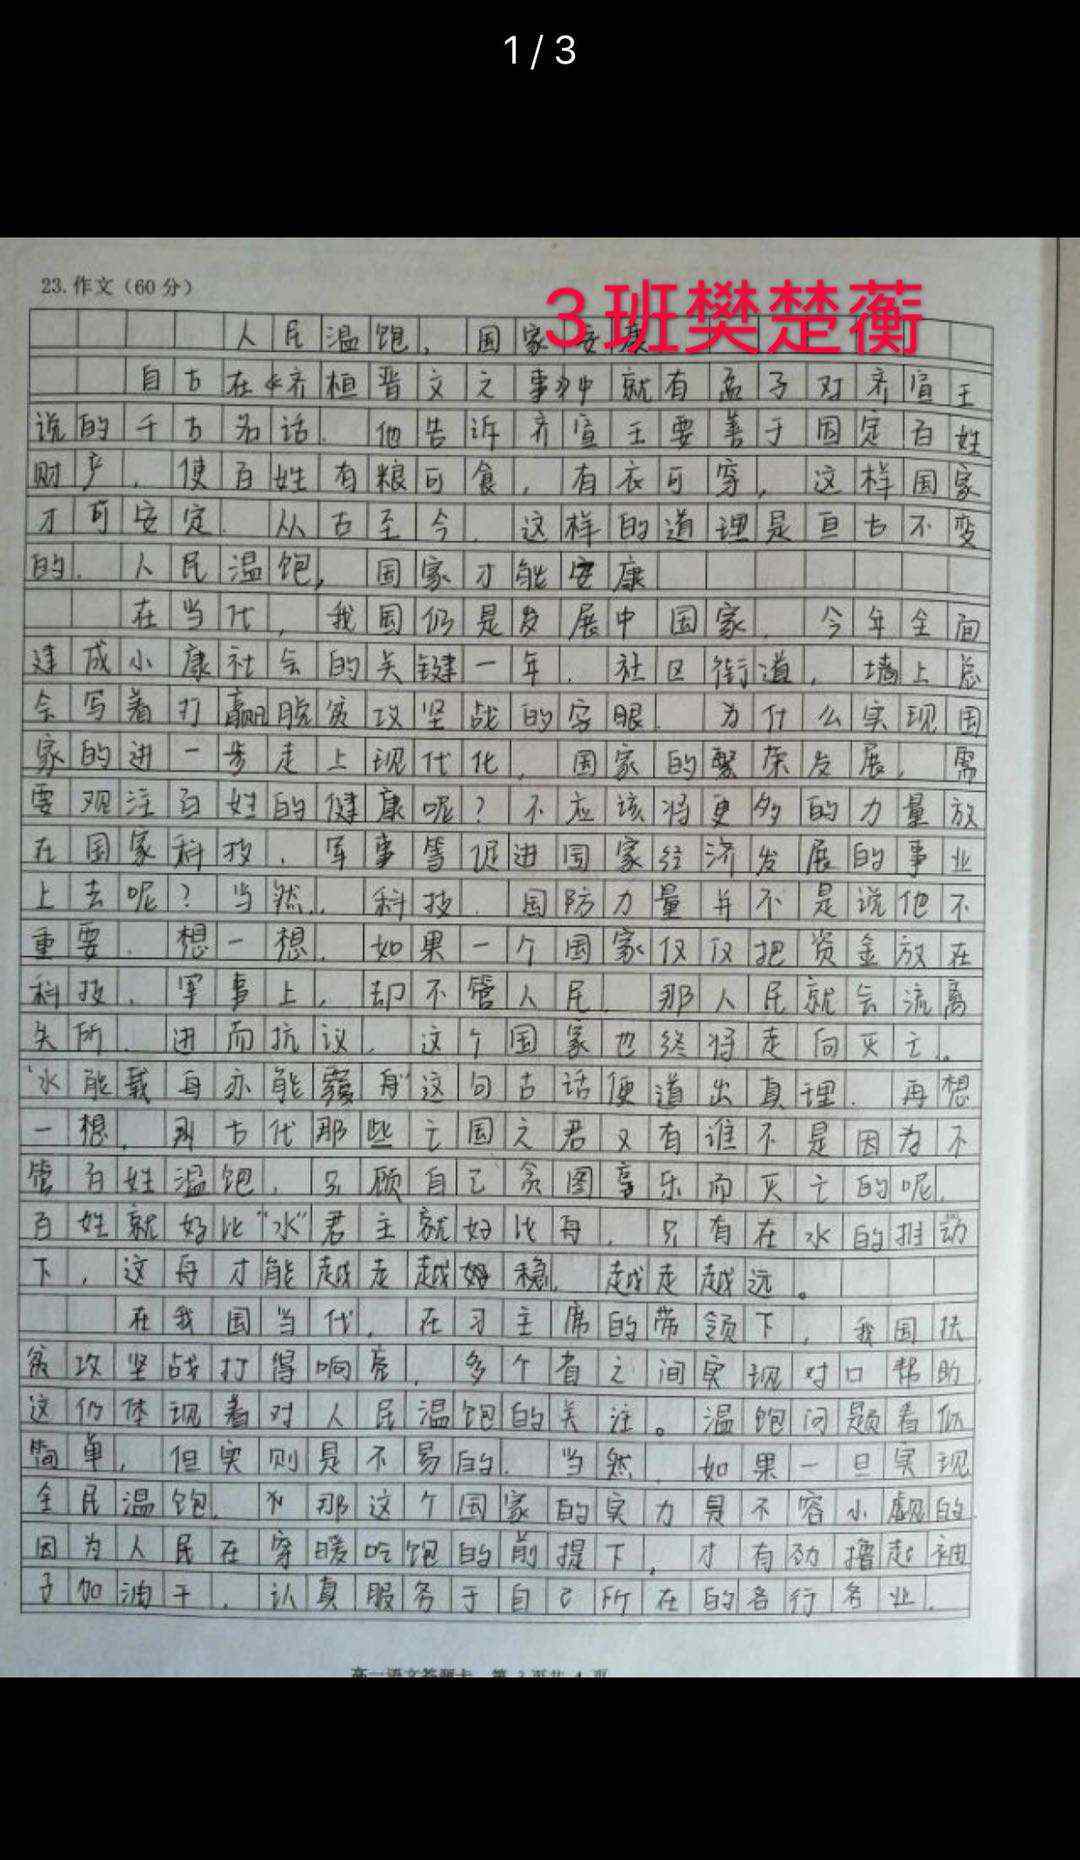 1 / 3
23.作文(60分)
3班樊楚蘅
人民温饱,国家安康
自古在《齐桓晋文之事》中就有孟子对齐宣王
说的千古名话.他告诉齐宣王要善于固定百姓
财产,使百姓有粮可食,有衣可穿,这样国家
才可安定.从古至今 这样的道理是亘古不变
的.人民温饱,国家才能安康
在当代,我国仍是发展中国家.今年全面
建成小康社会的关键一年.社区街道,墙上总
会写着打赢脱贫攻坚战的字眼.为什么实现国
家的进一步走上现代化,国家的繁荣发展,需
要观注百姓的健康呢?不应该将更多的力量放
在国家科技,军事等促进国家经济发展的事业
上去呢?当然,科技.国防力量并不是说他不
重要.想一想,如果一个国家仅仅把资金放在
科技.军事上,却不管人民,那人民就会流离
失所.进而抗议,这个国家也终将走向灭亡。
"水能载舟亦能覆舟"这句古话便道出真理.再想
一想,那古代那些亡国之君又有谁不是因为不
管百姓温饱,只顾自己贪图享乐而灭亡的呢.
百姓就好比"水"君主就好比舟,只有在水的推动
下,这舟才能越走越稳,越走越远。
在我国当代,在习主席的带领下,我国扶
贫攻坚战打得响亮,多个省之间实现对口帮助,
这仍体现着对人民温饱的关注。温饱问题看似
简单,但实则是不易的.当然,如果一旦实现
全民温饱,那这个国家的实力是不容小觑的,
因为人民在穿暖吃饱的前提下,才有劲撸起袖
子加油干,认真服务于自己所在的各行各业.